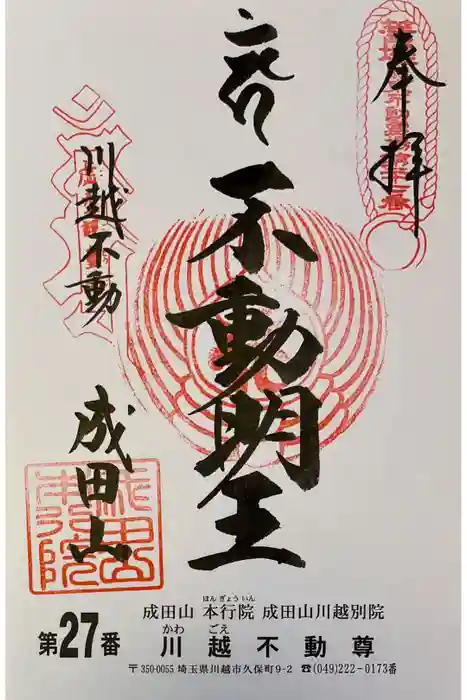 奉拝
不動明王
川越不動
成田山
成田山 本行院 成田山川越別院
ほんぎょういん
第27番 川越不動尊
かわ ごえ
〒350-0055 埼玉県川越市久保町9-2 ☎(049)222-0173番